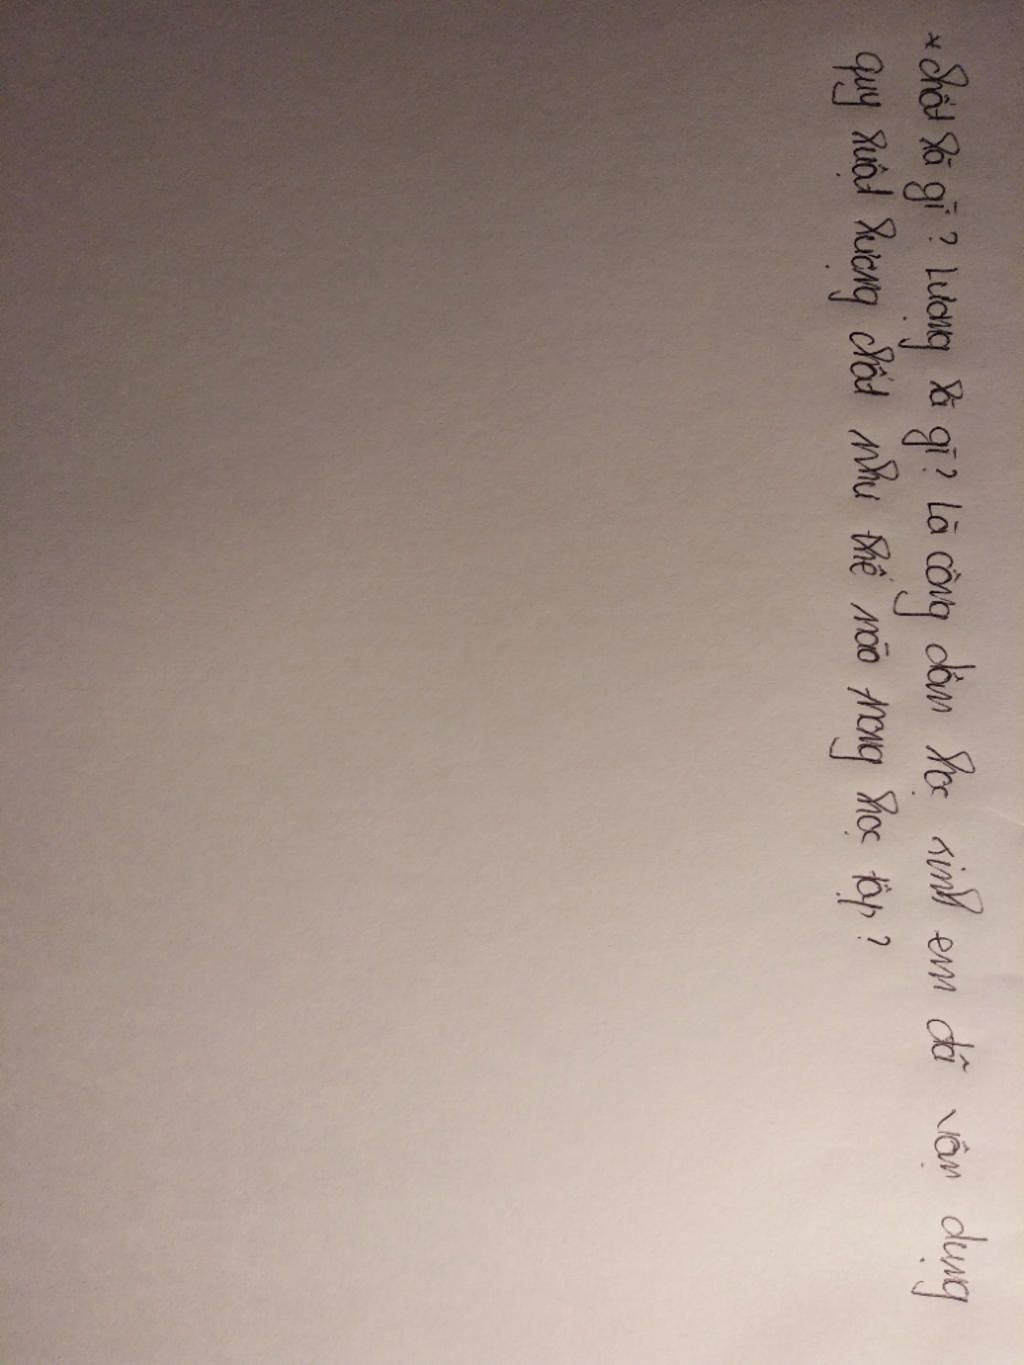 * Chất là gì? Lượng là gì? Là công dân học sinh em đã vận dụng
quy luật lượng chất như thế nào trong học tập?